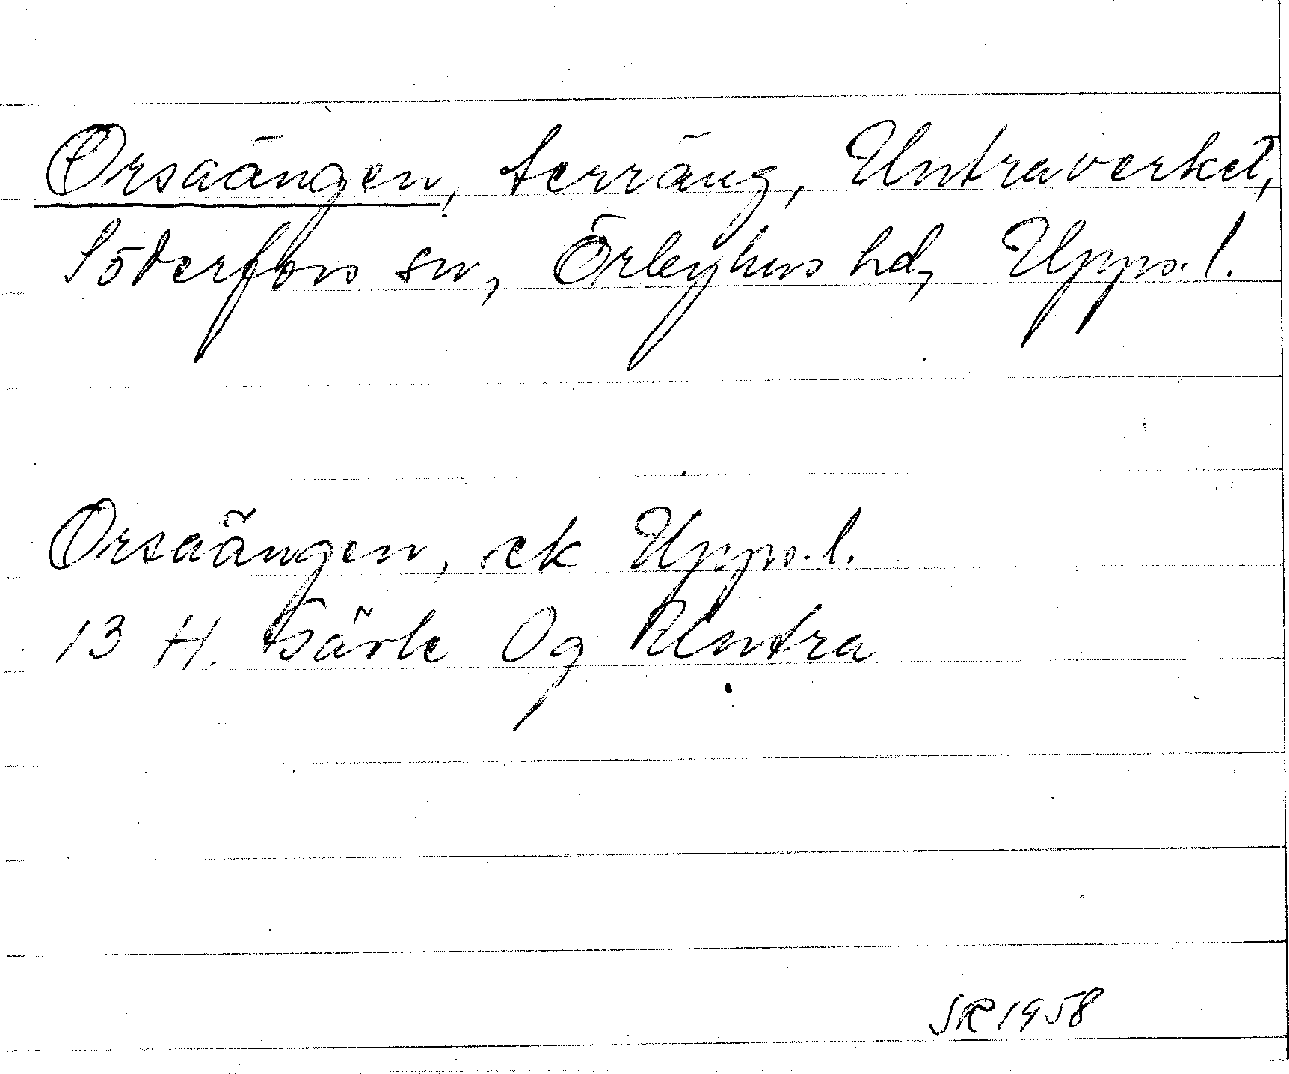 Orsaängen, terräng, Untraverket,
Söderfors sn, Örbyhus hd, Upps. l.
Orsaängen, ek Upps. l.
13 H. Gävle Og Untra
SR 1958